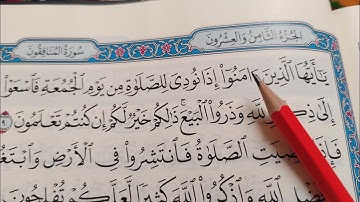 الجُزْءُ الثَّامِنُ وَالعِشْرُونَ سُورَةُ المُنَافِقُونَ
يَٰٓأَيُّهَا ٱلَّذِينَ ءَامَنُوٓاْ إِذَا نُودِيَ لِلصَّلَوٰةِ مِن يَوْمِ ٱلْجُمُعَةِ فَٱسْعَوْاْ
إِلَىٰ ذِكْرِ ٱللَّهِ وَذَرُواْ ٱلْبَيْعَ ۚ ذَٰلِكُمْ خَيْرٌ لَّكُمْ إِن كُنتُمْ تَعْلَمُونَ
ٱلصَّلَوٰةُ فَٱنتَشِرُواْ فِي ٱلْأَرْضِ
ٱللَّهِ وَٱذْكُرُواْ ٱللَّهَ كَثِيرًا لَّعَلَّكُمْ تُفْلِحُونَ